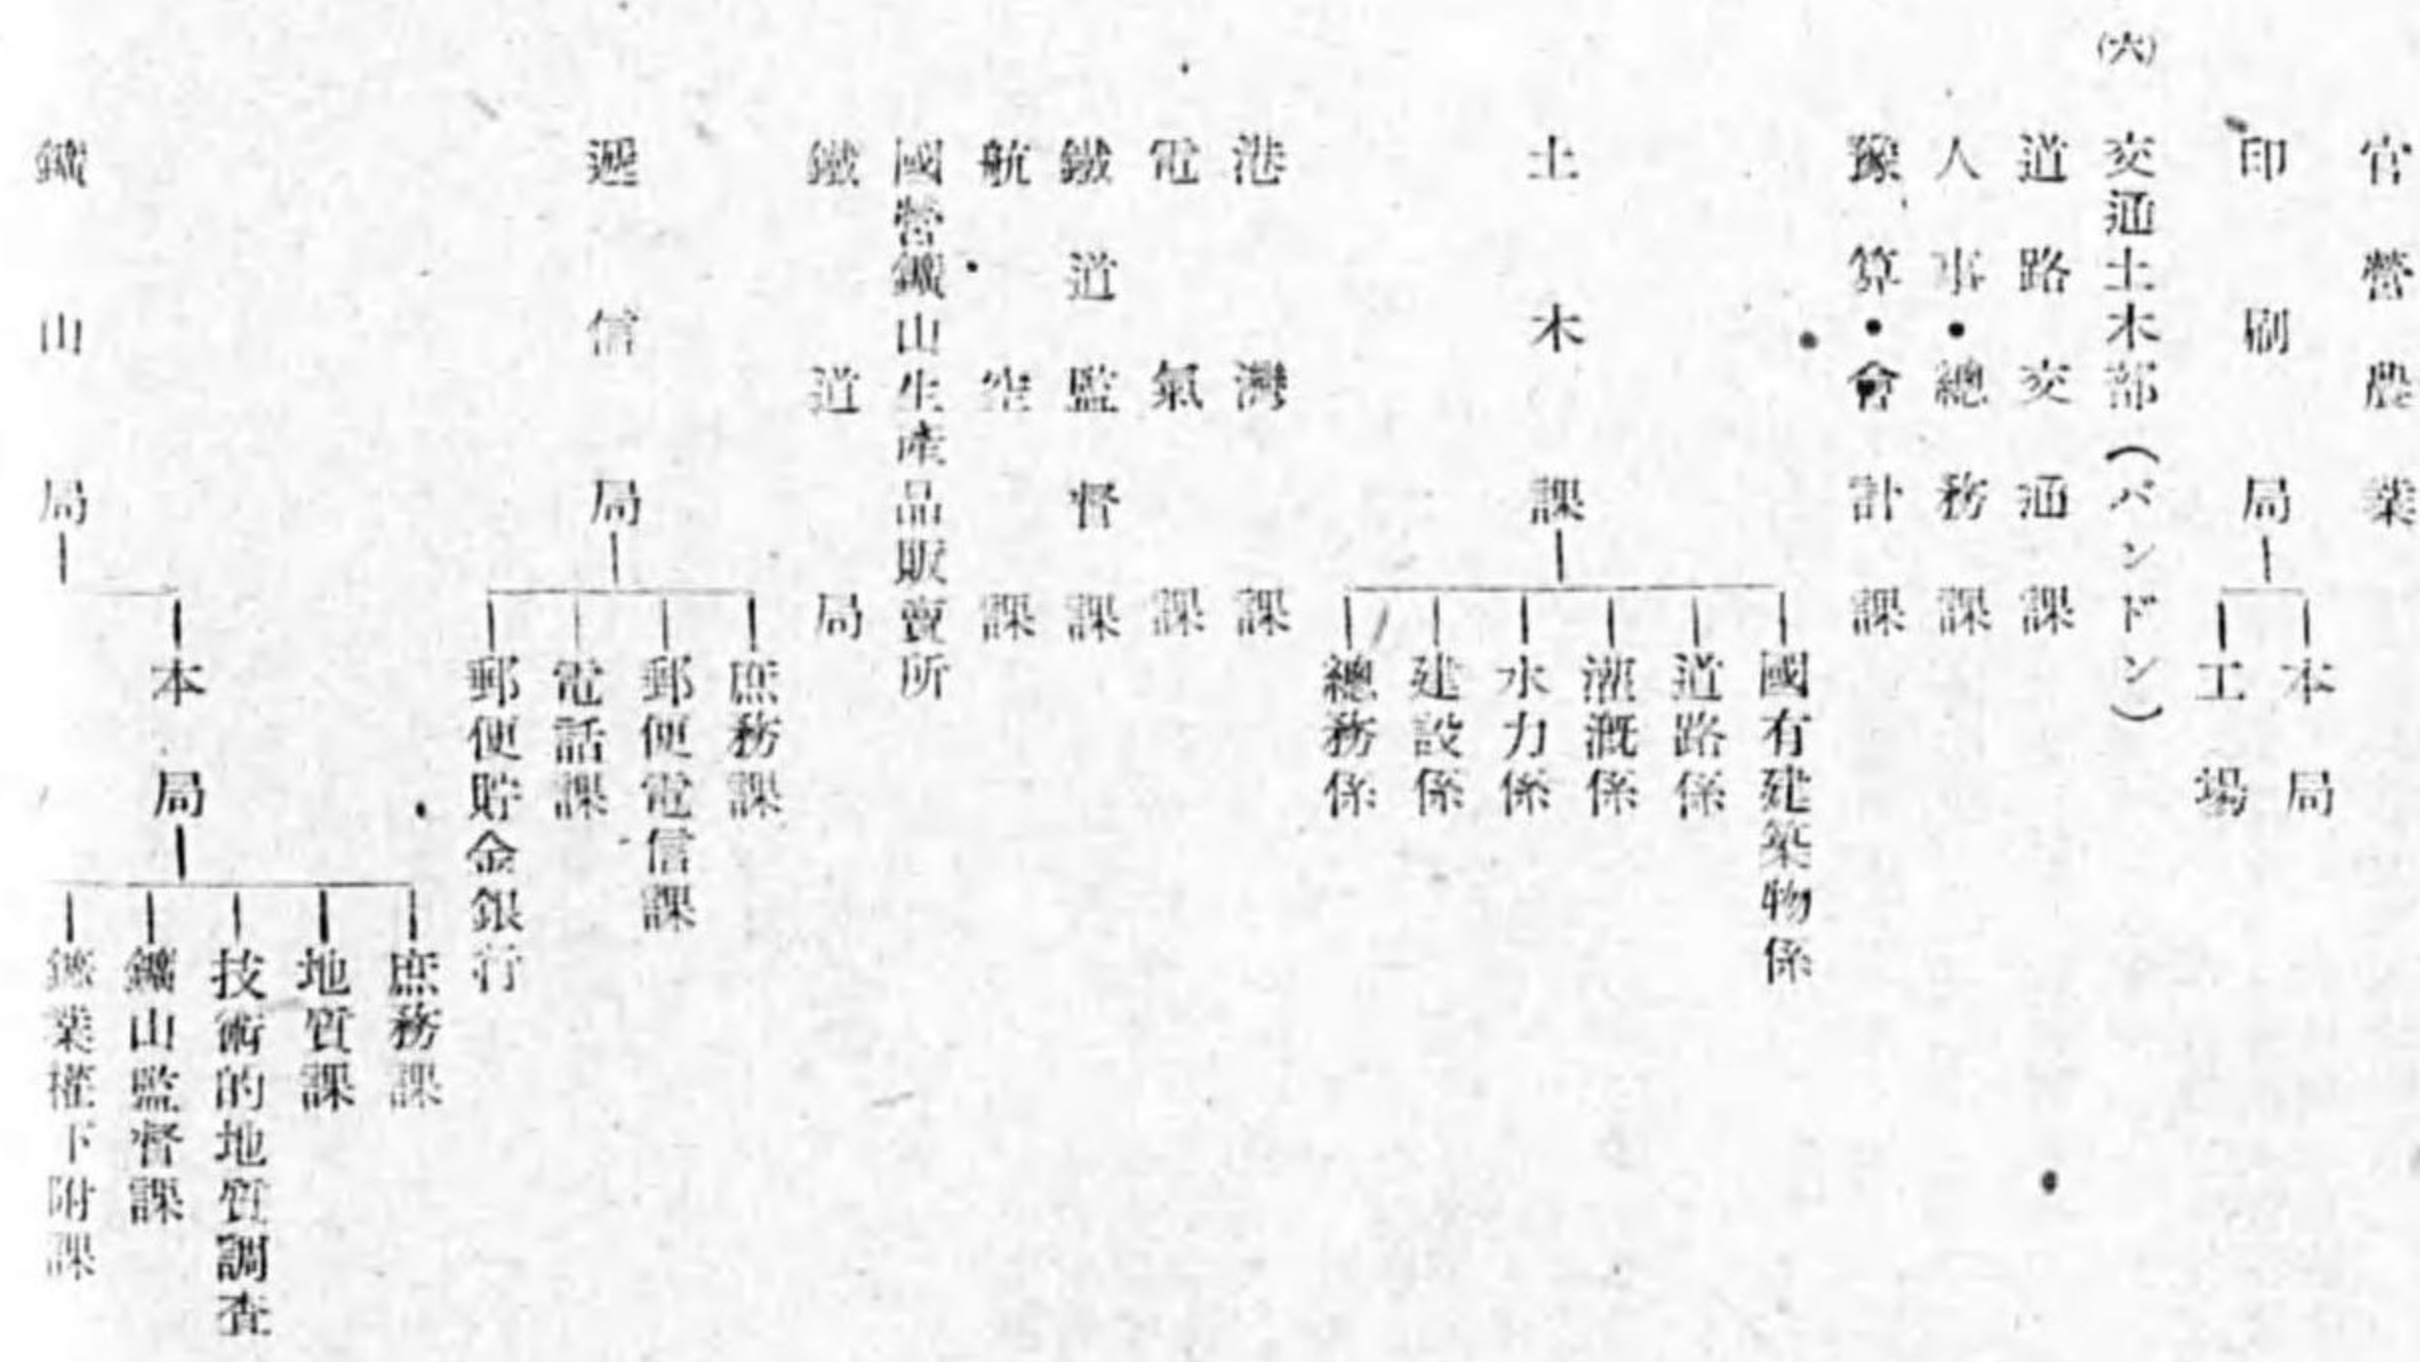 官營農業
印刷局
本局
工場
(六)
交通土木部(バンドン)
道路交通課
人事・總務課
豫算・會計課
土木課
國有建築物係
道路係
灌漑係
水力係
建設係
總務係
港灣課
電氣課
鐵道監督課
航空課
國營鑛山生產品販賣所
鐵道局
遞信局
庶務課
郵便電信課
電話課
郵便貯金銀行
鑛山局
本局
庶務課
地質課
技術的地質調査
鑛山監督課
鑛業權下附課